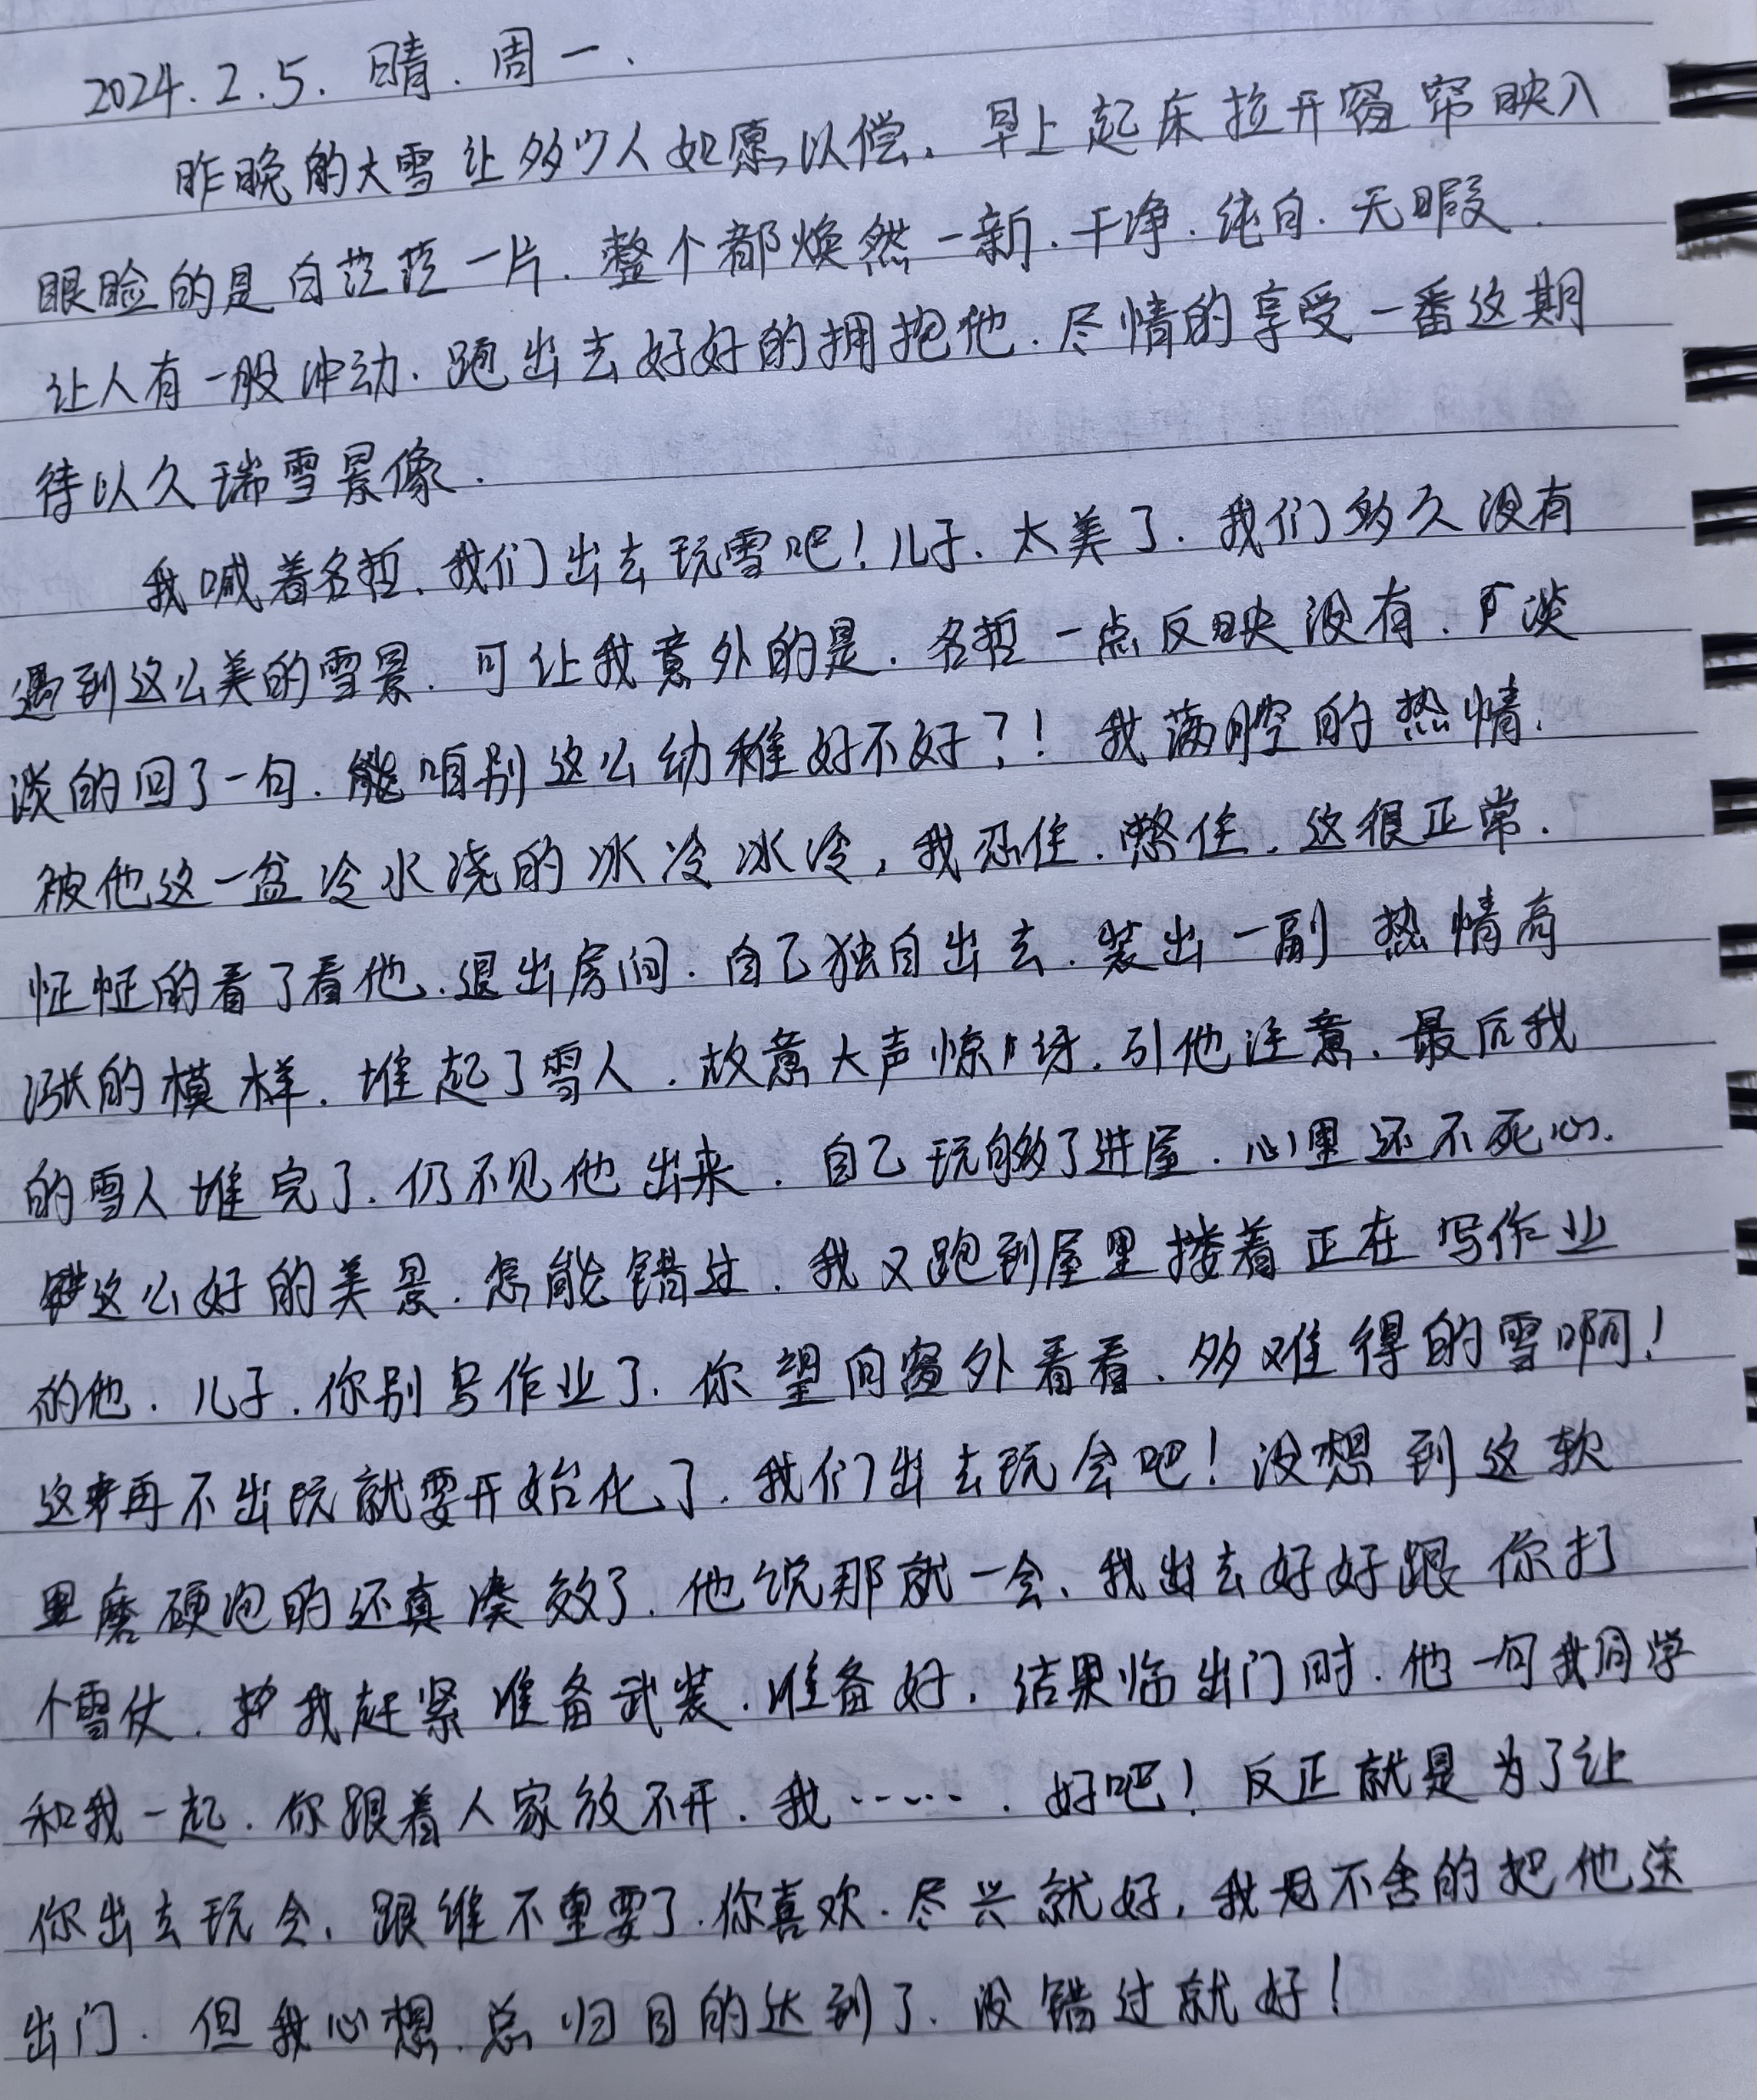 2024.2.5. 晴. 周一.
昨晚的大雪让多少人如愿以偿. 早上起床拉开窗帘映入
眼睑的是白茫茫一片. 整个都焕然一新. 干净. 纯白. 无暇.
让人有一股冲动. 跑出去好好的拥抱他. 尽情的享受一番这期
待以久瑞雪景像.
我喊着名哲. 我们出去玩雪吧! 儿子. 太美了. 我们多久没有
遇到这么美的雪景. 可让我意外的是. 名哲一点反映没有. 淡
淡的回了一句. 能咱别这么幼稚好不好?! 我满腔的热情.
被他这一盆冷水浇的冰冷冰冷, 我忍住. 憋住. 这很正常.
怔怔的看了看他. 退出房间. 自己独自出去. 装出一副热情高
涨的模样. 堆起了雪人. 故意大声惊呀. 引他注意. 最后我
的雪人堆完了. 仍不见他出来. 自己玩够了进屋. 心里还不死心.
这么好的美景. 怎能错过. 我又跑到屋里搂着正在写作业
的他. 儿子. 你别写作业了. 你望向窗外看看. 多难得的雪啊!
这再不出玩就要开始化了. 我们出去玩会吧! 没想到这软
里磨硬泡的还真凑效了. 他说那就一会、我出去好好跟你打
个雪仗. 我赶紧准备武装. 准备好. 结果临出门时. 他一句我同学
和我一起. 你跟着人家放不开. 我······. 好吧! 反正就是为了让
你出去玩会, 跟谁不重要了. 你喜欢. 尽兴就好, 我不舍的把他送
出门. 但我心想. 总归目的达到了. 没错过就好!